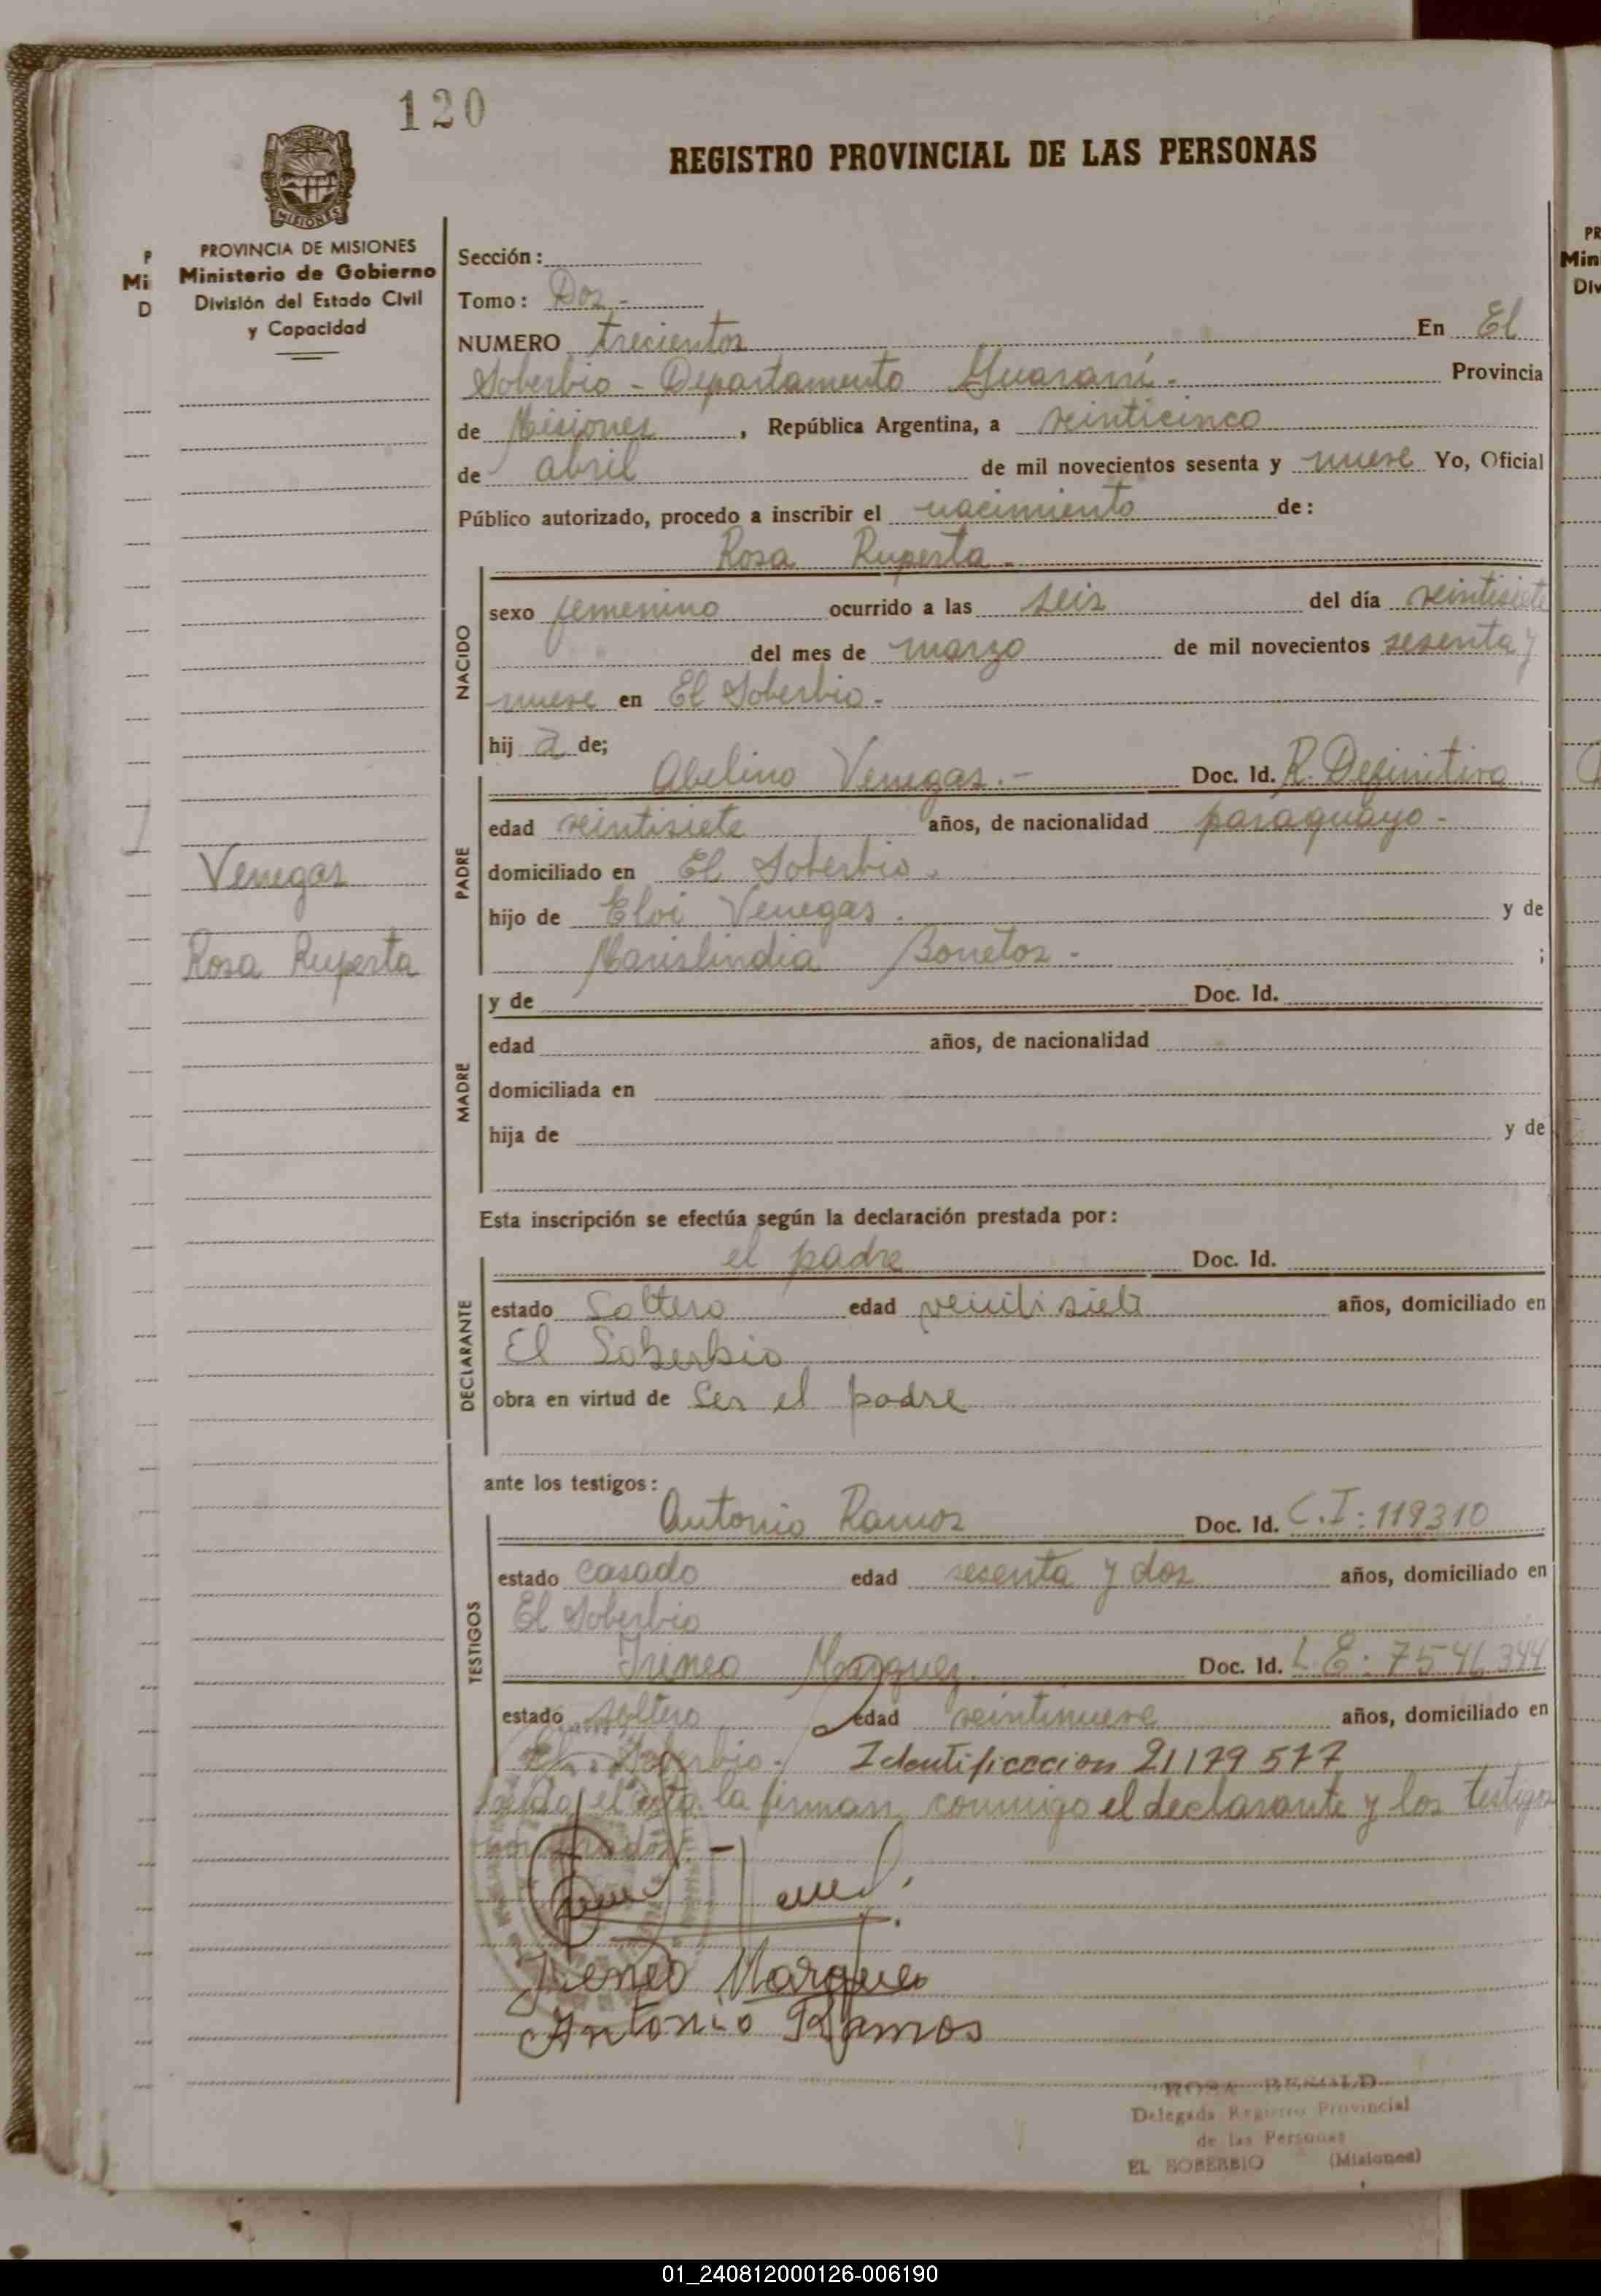 120
REGISTRO PROVINCIAL DE LAS PERSONAS
PROVINCIA DE MISIONES
Ministerio de Gobierno
División del Estado Civil
y Capacidad
Venegas
Rosa Ruperta
Sección:
Tomo: Dos -
NUMERO trecientos En El
Soberbio - Departamento Guaraní - Provincia
de Misiones, República Argentina, a veinticinco
de abril de mil novecientos sesenta y nueve Yo, Oficial
Público autorizado, procedo a inscribir el nacimiento de:
Rosa Ruperta -
NACIDO
sexo femenino ocurrido a las seis del día veintisiete
del mes de marzo de mil novecientos sesenta y
nueve en El Soberbio -
hij a de;
PADRE
Abelino Venegas.- Doc. Id. R. Definitiva
edad veintisiete años, de nacionalidad paraguayo -
domiciliado en El Soberbio.
hijo de Eloi Venegas. y de
Bonetos - ;
MADRE
y de Doc. Id.
edad años, de nacionalidad
domiciliada en
hija de y de
Esta inscripción se efectúa según la declaración prestada por:
DECLARANTE
el padre Doc. Id.
estado Soltero edad veintisiete años, domiciliado en
El Soberbio
obra en virtud de Ser el padre
ante los testigos:
TESTIGOS
Antonio Ramos Doc. Id. C.I: 119310
estado casado edad sesenta y dos años, domiciliado en
El Soberbio
Ireneo Marquez. Doc. Id. L.E.
estado soltero edad veintinueve años, domiciliado en
El Soberbio. Identificacion 21179577
Leida el acta la firman conmigo el declarante y los testigos
nombrados. -
Ireneo Marquez
Antonio Ramos
ROSA BESOLD
Delegada Registro Provincial
de las Personas
EL SOBERBIO (Misiones)
01_240812000126-006190